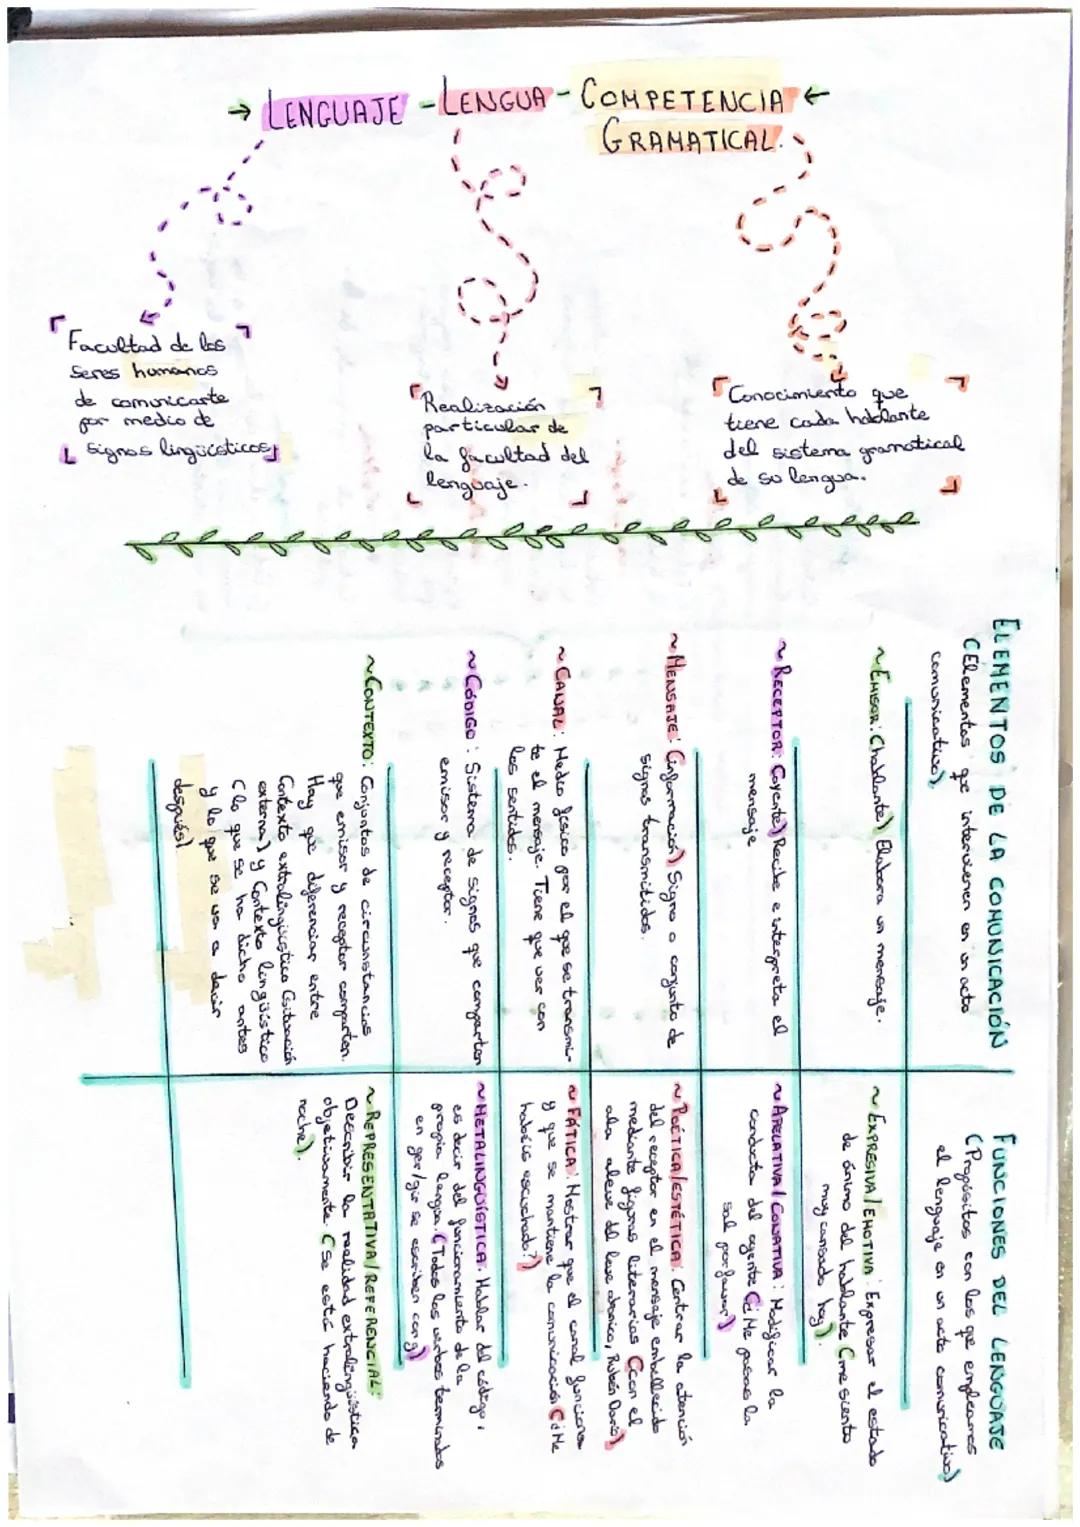 → LENGUAJE - LENGUA - COMPETENCIA ←
GRAMATICAL.
Facultad de los
seres humanos
de comunicarte
por medio de
signos lingüísticos
Realización
particular de
la facultad del
lenguaje.
Conocimiento que
tiene cada hablante
del sistema gramatical
de su lengua.
ELEMENTOS DE LA COMUNICACIÓN
(Elementos que intervienen en un acto
comunicativo).
~ EMISOR: (hablante) Elabora un mensaje.
~ RECEPTOR: (oyente) Recibe e interpreta el
mensaje
~ MENSAJE: (información) Signo o conjunto de
signos transmitidos.
~ CANAL: Medio físico por el que se transmi-
te el mensaje. Tiene que ver con
los sentidos.
~ CÓDIGO: Sistema de signos que comparten
emisor y receptor.
~ CONTEXTO: Conjuntos de circunstancias
que emisor y receptor comparten.
Hay que diferenciar entre
Contexto extralingüístico (situación
externa) y Contexto lingüístico
(lo que se ha dicho antes
y lo que se va a decir
después).
FUNCIONES DEL LENGUAJE
(Propósitos con los que empleamos
el lenguaje en un acto comunicativo)
~ EXPRESIVA/EMOTIVA: Expresar el estado
de ánimo del hablante (me siento
muy cansado hoy).
~ APELATIVA/CONATIVA: Modificar la
conducta del oyente (¿Me pasas la
sal por favor?)
~ POÉTICA/ESTÉTICA: Centrar la atención
del receptor en el mensaje embellecido
mediante figuras literarias (con el
ala aleve del leve abanico, Rubén Darío)
~ FÁTICA: Mostrar que el canal funciona
y que se mantiene la comunicación (¿Me
habéis escuchado?)
~ METALINGÜÍSTICA: Hablar del código,
es decir del funcionamiento de la
propia lengua. (Todos los verbos terminados
en ger/gir se escriben con g)
~ REPRESENTATIVA/REFERENCIAL:
Describir la realidad extralingüística
objetivamente. (Se está haciendo de
noche).